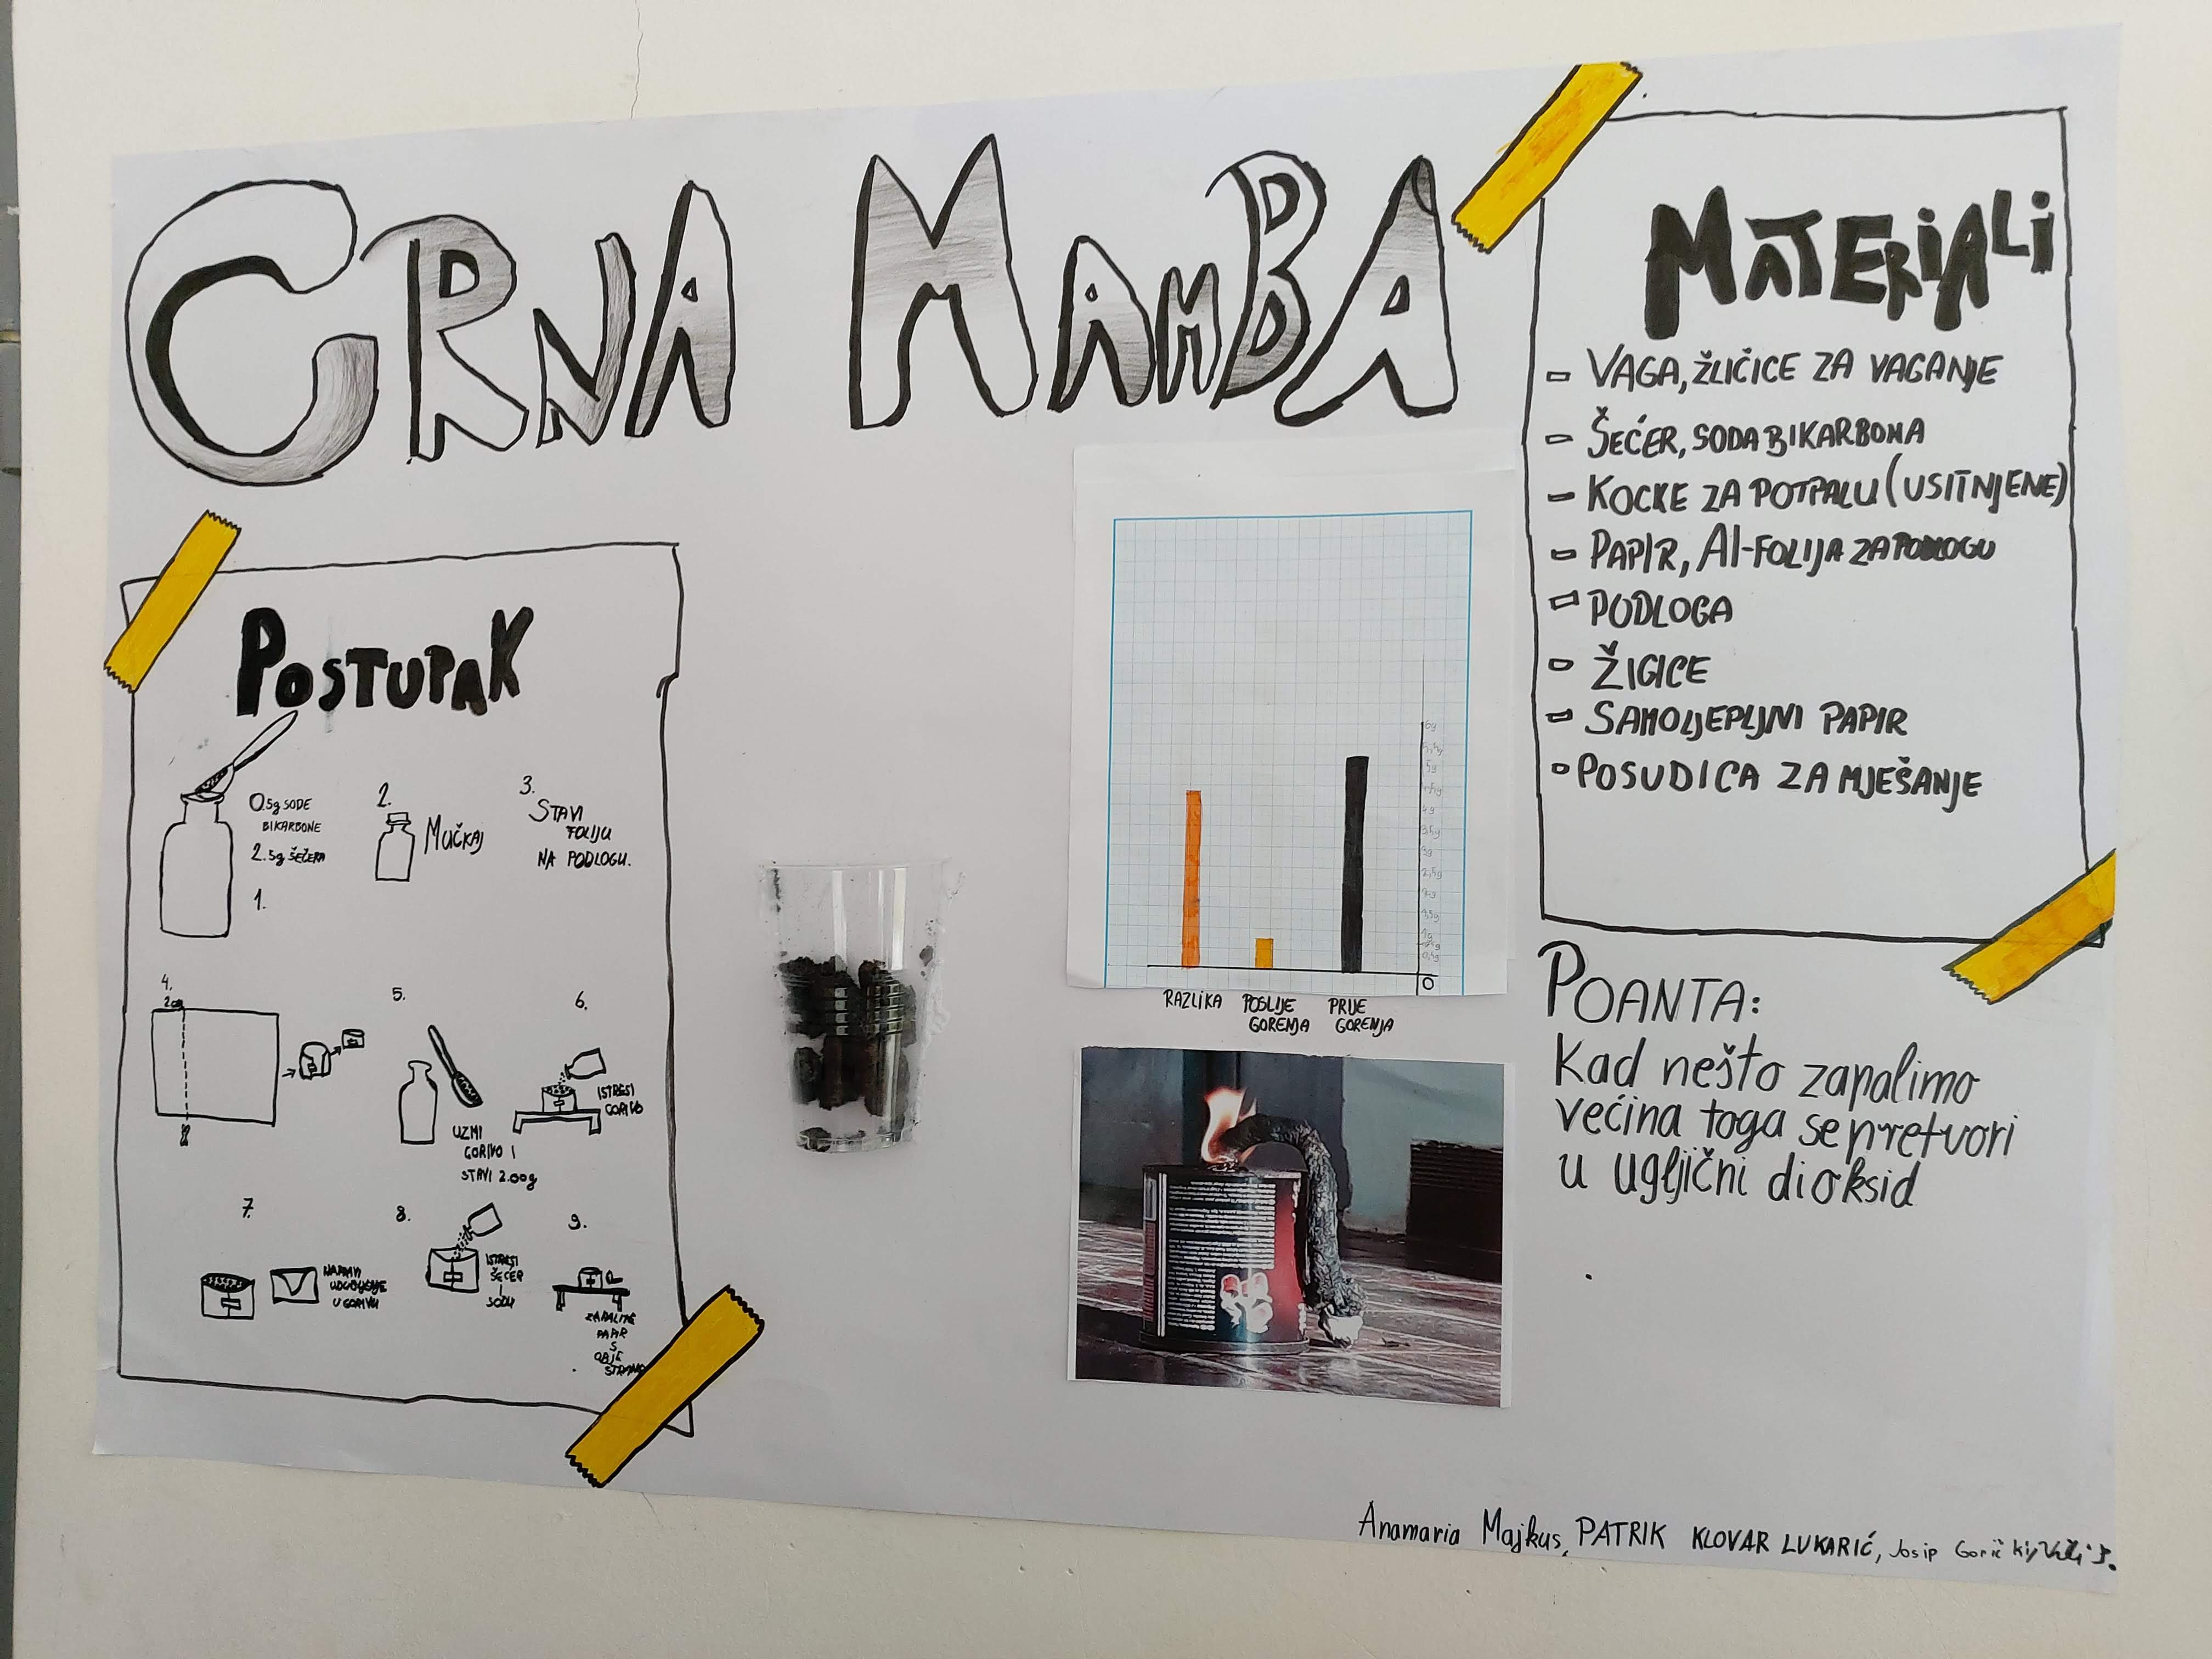 CRNA MAMBA
MATERIJALI
- VAGA, ŽLIČICE ZA VAGANJE
- ŠEĆER, SODA BIKARBONA
- KOCKE ZA POTPALU (USITNJENE)
- PAPIR, Al-FOLIJA ZA PODLOGU
- PODLOGA
- ŽIGICE
- SAMOLJEPLJIVI PAPIR
- POSUDICA ZA MJEŠANJE
POSTUPAK
0.5g SODE
BIKARBONE
2.5g ŠEČERA
1.
2.
MUČKAJ
3.
STAVI
FOLIJU
NA PODLOGU.
4.
2cm
5.
UZMI
GORIVO I
STAVI 2.00g
6.
ISTRESI
GORIVO
7.
NAPRAVI
UDUBLJENJE
U GORIVU
8.
ISTRESI
ŠEĆER
I
SODU
9.
ZAPALITE
PAPIR
S
OBJE
STRANE
6g
5,5g
5g
4,5g
4g
3,5g
3g
2,5g
2g
1,5g
1g
0,5g
0
RAZLIKA
POSLIJE
GORENJA
PRIJE
GORENJA
POANTA:
Kad nešto zapalimo
većina toga se pretvori
u ugljični dioksid
Anamaria Majkus, PATRIK KLOVAR LUKARIĆ, Josip Gorički,